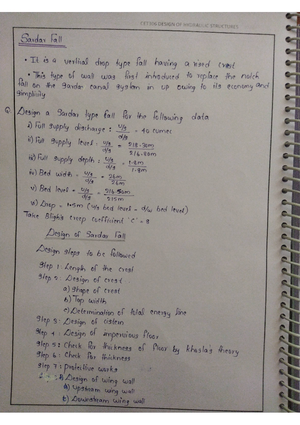 CET 308 DESIGN OF HYDRAULIC STRUCTURES
Sardar Fall
• It is a vertical drop type fall having a crest
• This type of wall was first introduced to replace the notch
fall on the Sarda canal system in UP owing to its economy and
simplicity
Q. Design a Sardar type fall for the following data
i) Full supply discharge : U/s / d/s = 40 cumec
ii) Full supply level : U/s / d/s = 218.30m /
iii) Full supply depth : U/s / d/s = 1.8m / 1.8m
iv) Bed width = U/s / d/s = 26m / 26m
v) Bed level = U/s / d/s =
vi) Drop = (U/s bed level - d/s bed level)
Take Bligh's creep coefficient 'C' = 8
Design of Sardar Fall
Design steps to be followed
Step 1 : Length of the crest
Step 2 : Design of crest
a) Shape of crest
b) Top width
c) Determination of total energy line
Step 3 : Design of cistern
Step 4 : Design of impervious floor
Step 5 : Check for thickness of floor by khosla's theory
Step 6 : Check for thickness
Step 7 : Protective works
Design of wing wall
a) Upstream wing wall
b) Downstream wing wall